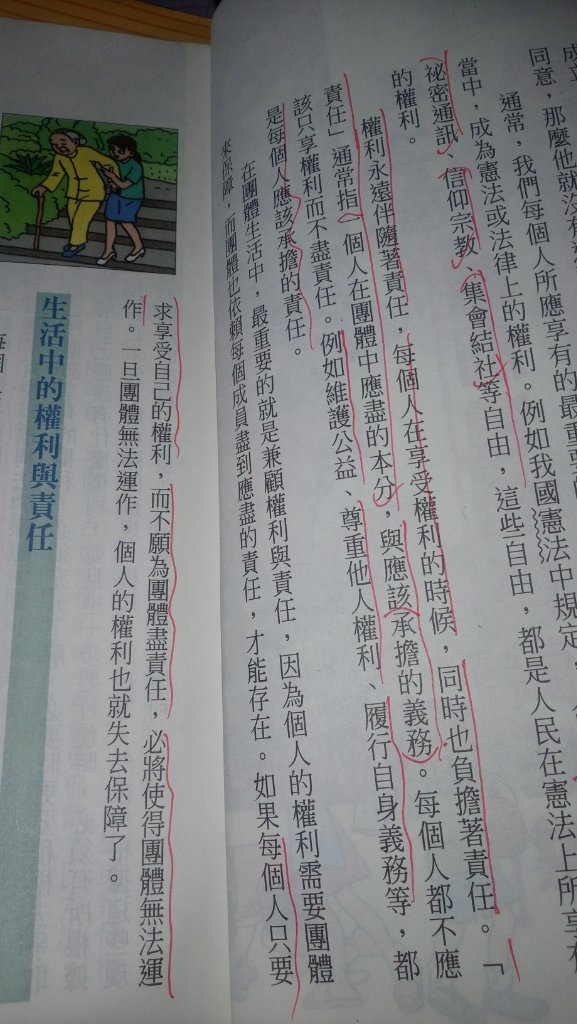 同意，那麼他就沒有
通常，我們每個人所應享有的最重要的
當中，成為憲法或法律上的權利。例如我國憲法中規定，
祕密通訊、信仰宗教、集會結社等自由，這些自由，都是人民在憲法上所享有
的權利。
權利永遠伴隨著責任，每個人在享受權利的時候，同時也負擔著責任。「
責任」通常指一個人在團體中應盡的本分，與應該承擔的義務。每個人都不應
該只享權利而不盡責任。例如維護公益、尊重他人權利、履行自身義務等，都
是每個人應該承擔的責任。
在團體生活中，最重要的就是兼顧權利與責任，因為個人的權利需要團體
來保障，而團體也依賴每個成員盡到應盡的責任，才能存在。如果每個人只要
求享受自己的權利，而不願為團體盡責任，必將使得團體無法運
作。一旦團體無法運作，個人的權利也就失去保障了。
生活中的權利與責任